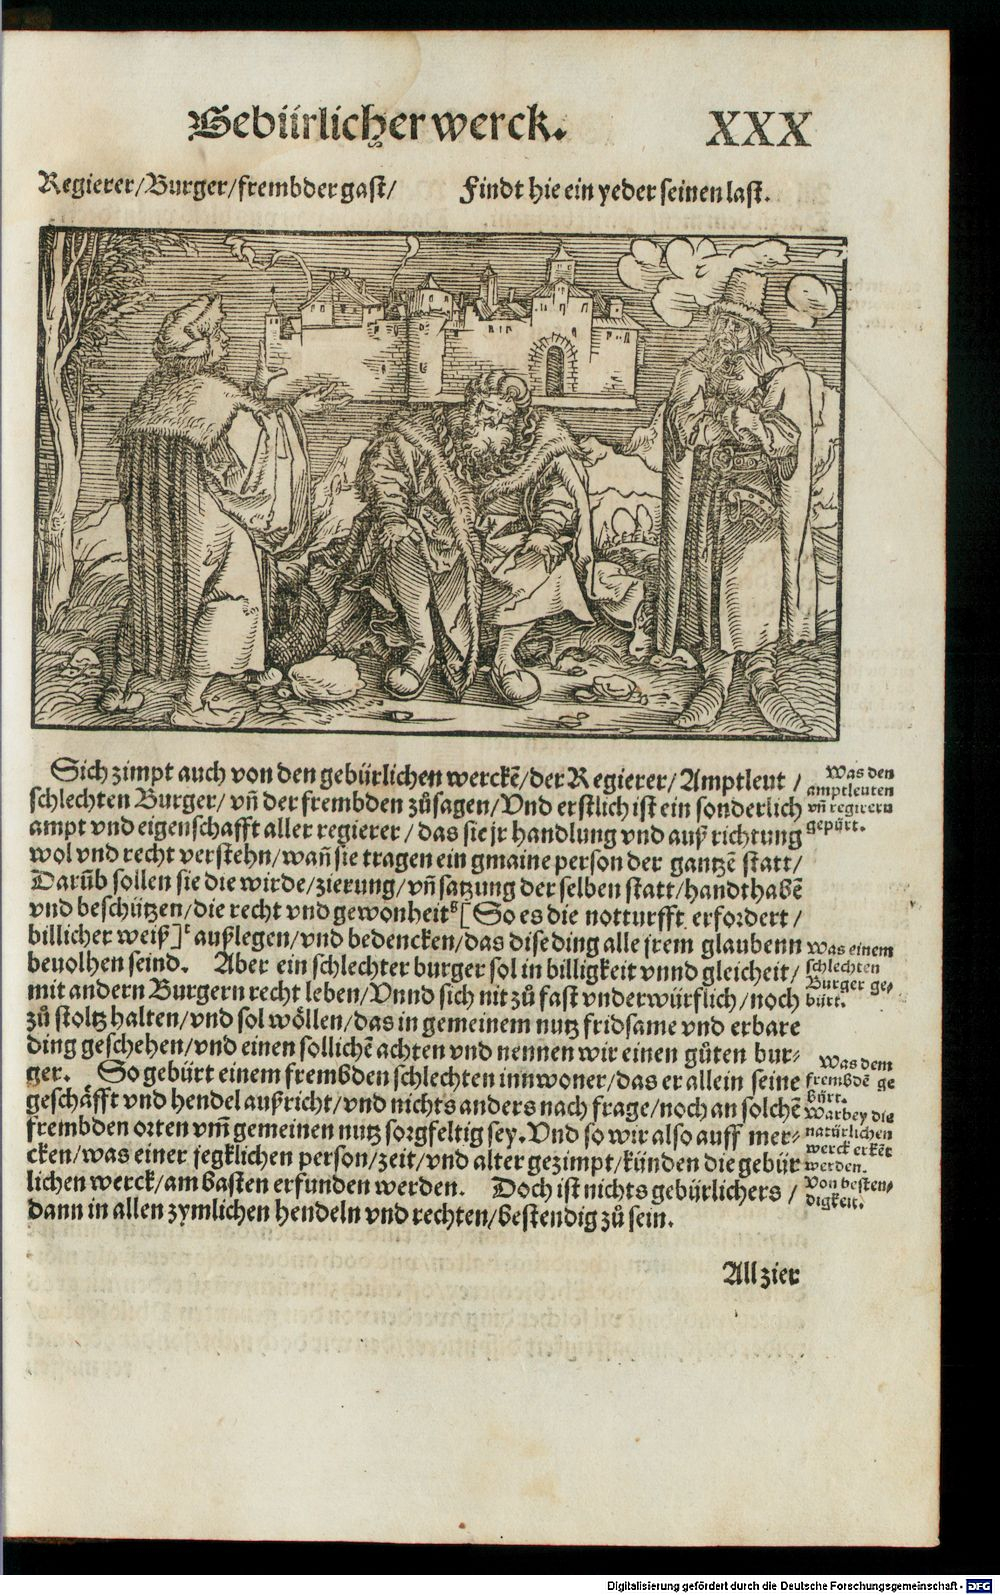 Gebürlicher werck.
XXX
Regierer/Burger/frembder gast/
Findt hie ein yeder seinen last.
Sich zimpt auch von den gebürlichen werckē/der Regierer/Amptleut /
schlechten Burger/ vñ der frembden zůsagen/Vnd erstlich ist ein sonderlich
ampt vnd eigenschafft aller regierer / das sie jr handlung vnd auß richtung
wol vnd recht verstehn/wañ sie tragen ein gmaine person der gantzē statt/
Darūb sollen sie die wirde/zierung/vñ satzung der selben statt/handthabē
vnd beschützen/die recht vnd gewonheit [So es die notturfft erfordert/
billicher weiß] außlegen/vnd bedencken/das dise ding alle jrem glaubenn
beuolhen seind. Aber ein schlechter burger sol in billigkeit vnnd gleicheit/
mit andern Burgern recht leben/Vnnd sich nit zů fast vnderwürflich/noch
zů stoltz halten/vnd sol wöllen/das in gemeinem nutz fridsame vnd erbare
ding geschehen/vnd einen sollichē achten vnd nennen wir einen gůten bur⸗
ger. So gebürt einem frembden schlechten innwoner/das er allein seine
geschäfft vnd hendel außricht/vnd nichts anders nach frage/noch an solchē
frembden orten vm̄ gemeinen nutz sorgfeltig sey. Vnd so wir also auff mer⸗
cken/was einer jegklichen person/zeit/vnd alter gezimpt/künden die gebür
lichen werck/am basten erfunden werden. Doch ist nichts gebürlichers /
dann in allen zymlichen hendeln vnd rechten/bestendig zů sein.
Was den
amptleuten
vñ regirern
gepürt.
Was einem
schlechten
Burger ge⸗
bürt.
Was dem
frembdē ge
bürt.
Warbey die
natürlichen
werck erkēt
werden.
Von besten⸗
digkeit.
All zier
Digitalisierung gefördert durch die Deutsche Forschungsgemeinschaft - DFG